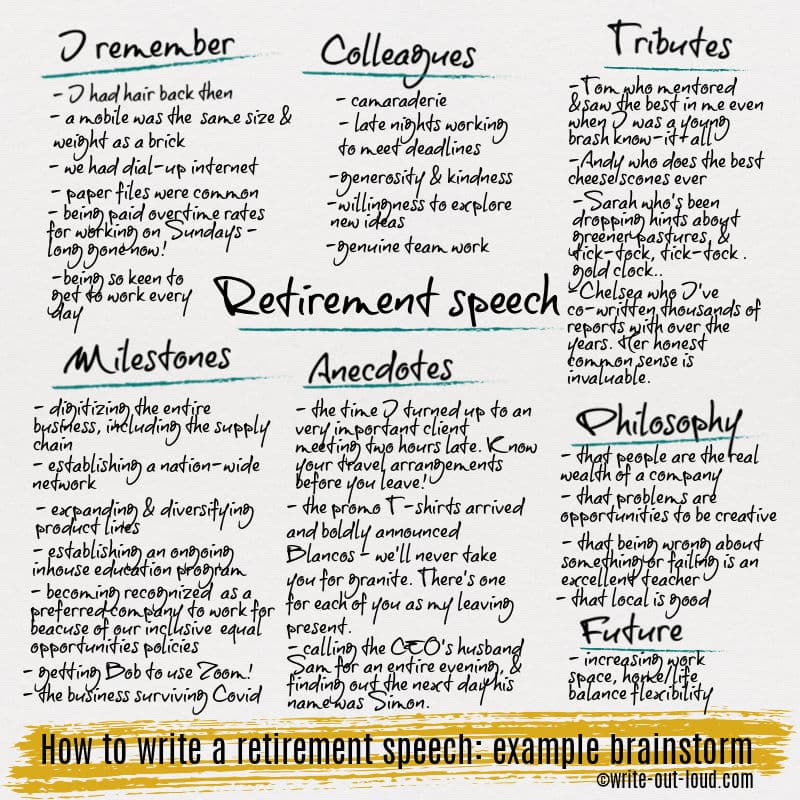 I remember
- I had hair back then
- a mobile was the same size &
weight as a brick
- we had dial-up internet
- paper files were common
- being paid overtime rates
for working on Sundays -
long gone now!
-being so keen to
get to work every
day
Colleagues
- camaraderie
- late nights working
to meet deadlines
-generosity & kindness
-willingness to explore
new ideas
-genuine team work
Tributes
-Tom who mentored
&saw the best in me even
when I was a young
brash know-it+all
-Andy who does the best
cheeselscones ever
-Sarah who's been
dropping hints about
greener pastures, &
tick-tock, tick-tock .
gold clock..
-Chelsea who I've
co-written thousands of
reports with over the
years. Her honest
common sense is
invaluable.
Retirement speech
Milestones
- digitizing the entire
business, including the supply
chain
- establishing a nation-wide
network
- expanding & diversifying
product lines
- establishing an ongoing
inhouse education program
- becoming recognized as a
preferred company to work for
beacuse of our inclusive equal
opportunities policies
- getting Bob to use Zoom!
- the business surviving Covid
Anecdotes
- the time I turned up to an
very important client
meeting two hours late. Know
your travel arrangements
before you leave!
- the promo T-shirts arrived
and boldly announced
Blancos - we'll never take
you for granite. There's one
for each of you as my leaving
present.
-calling the CEO's husband
Sam for an entire evening, &
finding out the next day his
name was Simon.
Philosophy
- that people are the real
wealth of a company
- that problems are
opportunities to be creative
- that being wrong about
something or failing is an
excellent teacher
- that local is good
Future
- increasing work
space, home/life
balance flexibility
How to write a retirement speech: example brainstorm
©write-out-loud.com